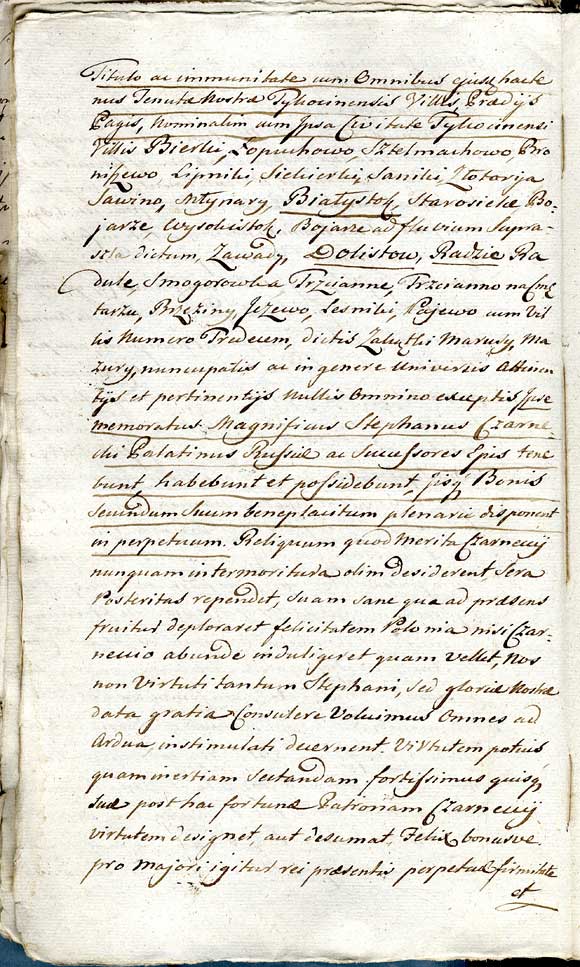 Titulo ac immunitate cum Omnibus ejusq hacte
nus Tenutæ Nostræ Tykocinensis Villis Prædijs
Pagis, Nominatim cum Ipsa Civitate Tykocinensi
Villis Bierki, Łopuchowo, Sztelmachowo, Bro
niszewo Lipniki, Siekierki, Saniki, Złotorija
Sawino, Młynary, Białystok, Starosielce Bo-
jarze, Wysokistok, Bojarze ad fluvium Supra-
szla dictum, Zawady, Dolistow, Radzie Ra
dule, Smogorowka Trzcianne, Trzcianno na Cmę
tarzu, Brzeziny, Jezewo, Lesniki, Pajewo cum Vil
lis Numero Tredecem, dictis Zalęzki Marusy, Ma
zury, nuncupatis ac in genere Universis Attinen
tijs et pertinentijs Nullis Omnino exceptis Ipse
memoratus Magnificus Stephanus Czarne
cki Palatinus Russiæ ac Successores Ejus tene
bunt, habebunt et possidebunt, Iisq Bonis
Secundum Suum beneplacitum plenarie disponent
in perpetuum. Reliquum quod Merita Czarnecij
nunquam intermoritura olim desiderent, Sera
Posteritas rependet, suam sane qua ad præsens
fruitur deploraret felicitatem Polonia nisi Czar-
neccio abunde indulgeret quam vellet, Nos
non Virtuti tantum Stephani, sed gloriæ Nostræ
data gratia Consulere Voluimus Omnes ad
Ardua, instimulati decernent. Virtutem potius
quam inertiam sectandam fortissimus quisq
suæ post hac fortunæ Patronam Czarnecij
virtutem designet, aut desumat, Felix bonusve
pro Majori igitur rei præsentis perpetuæ firmitate
et